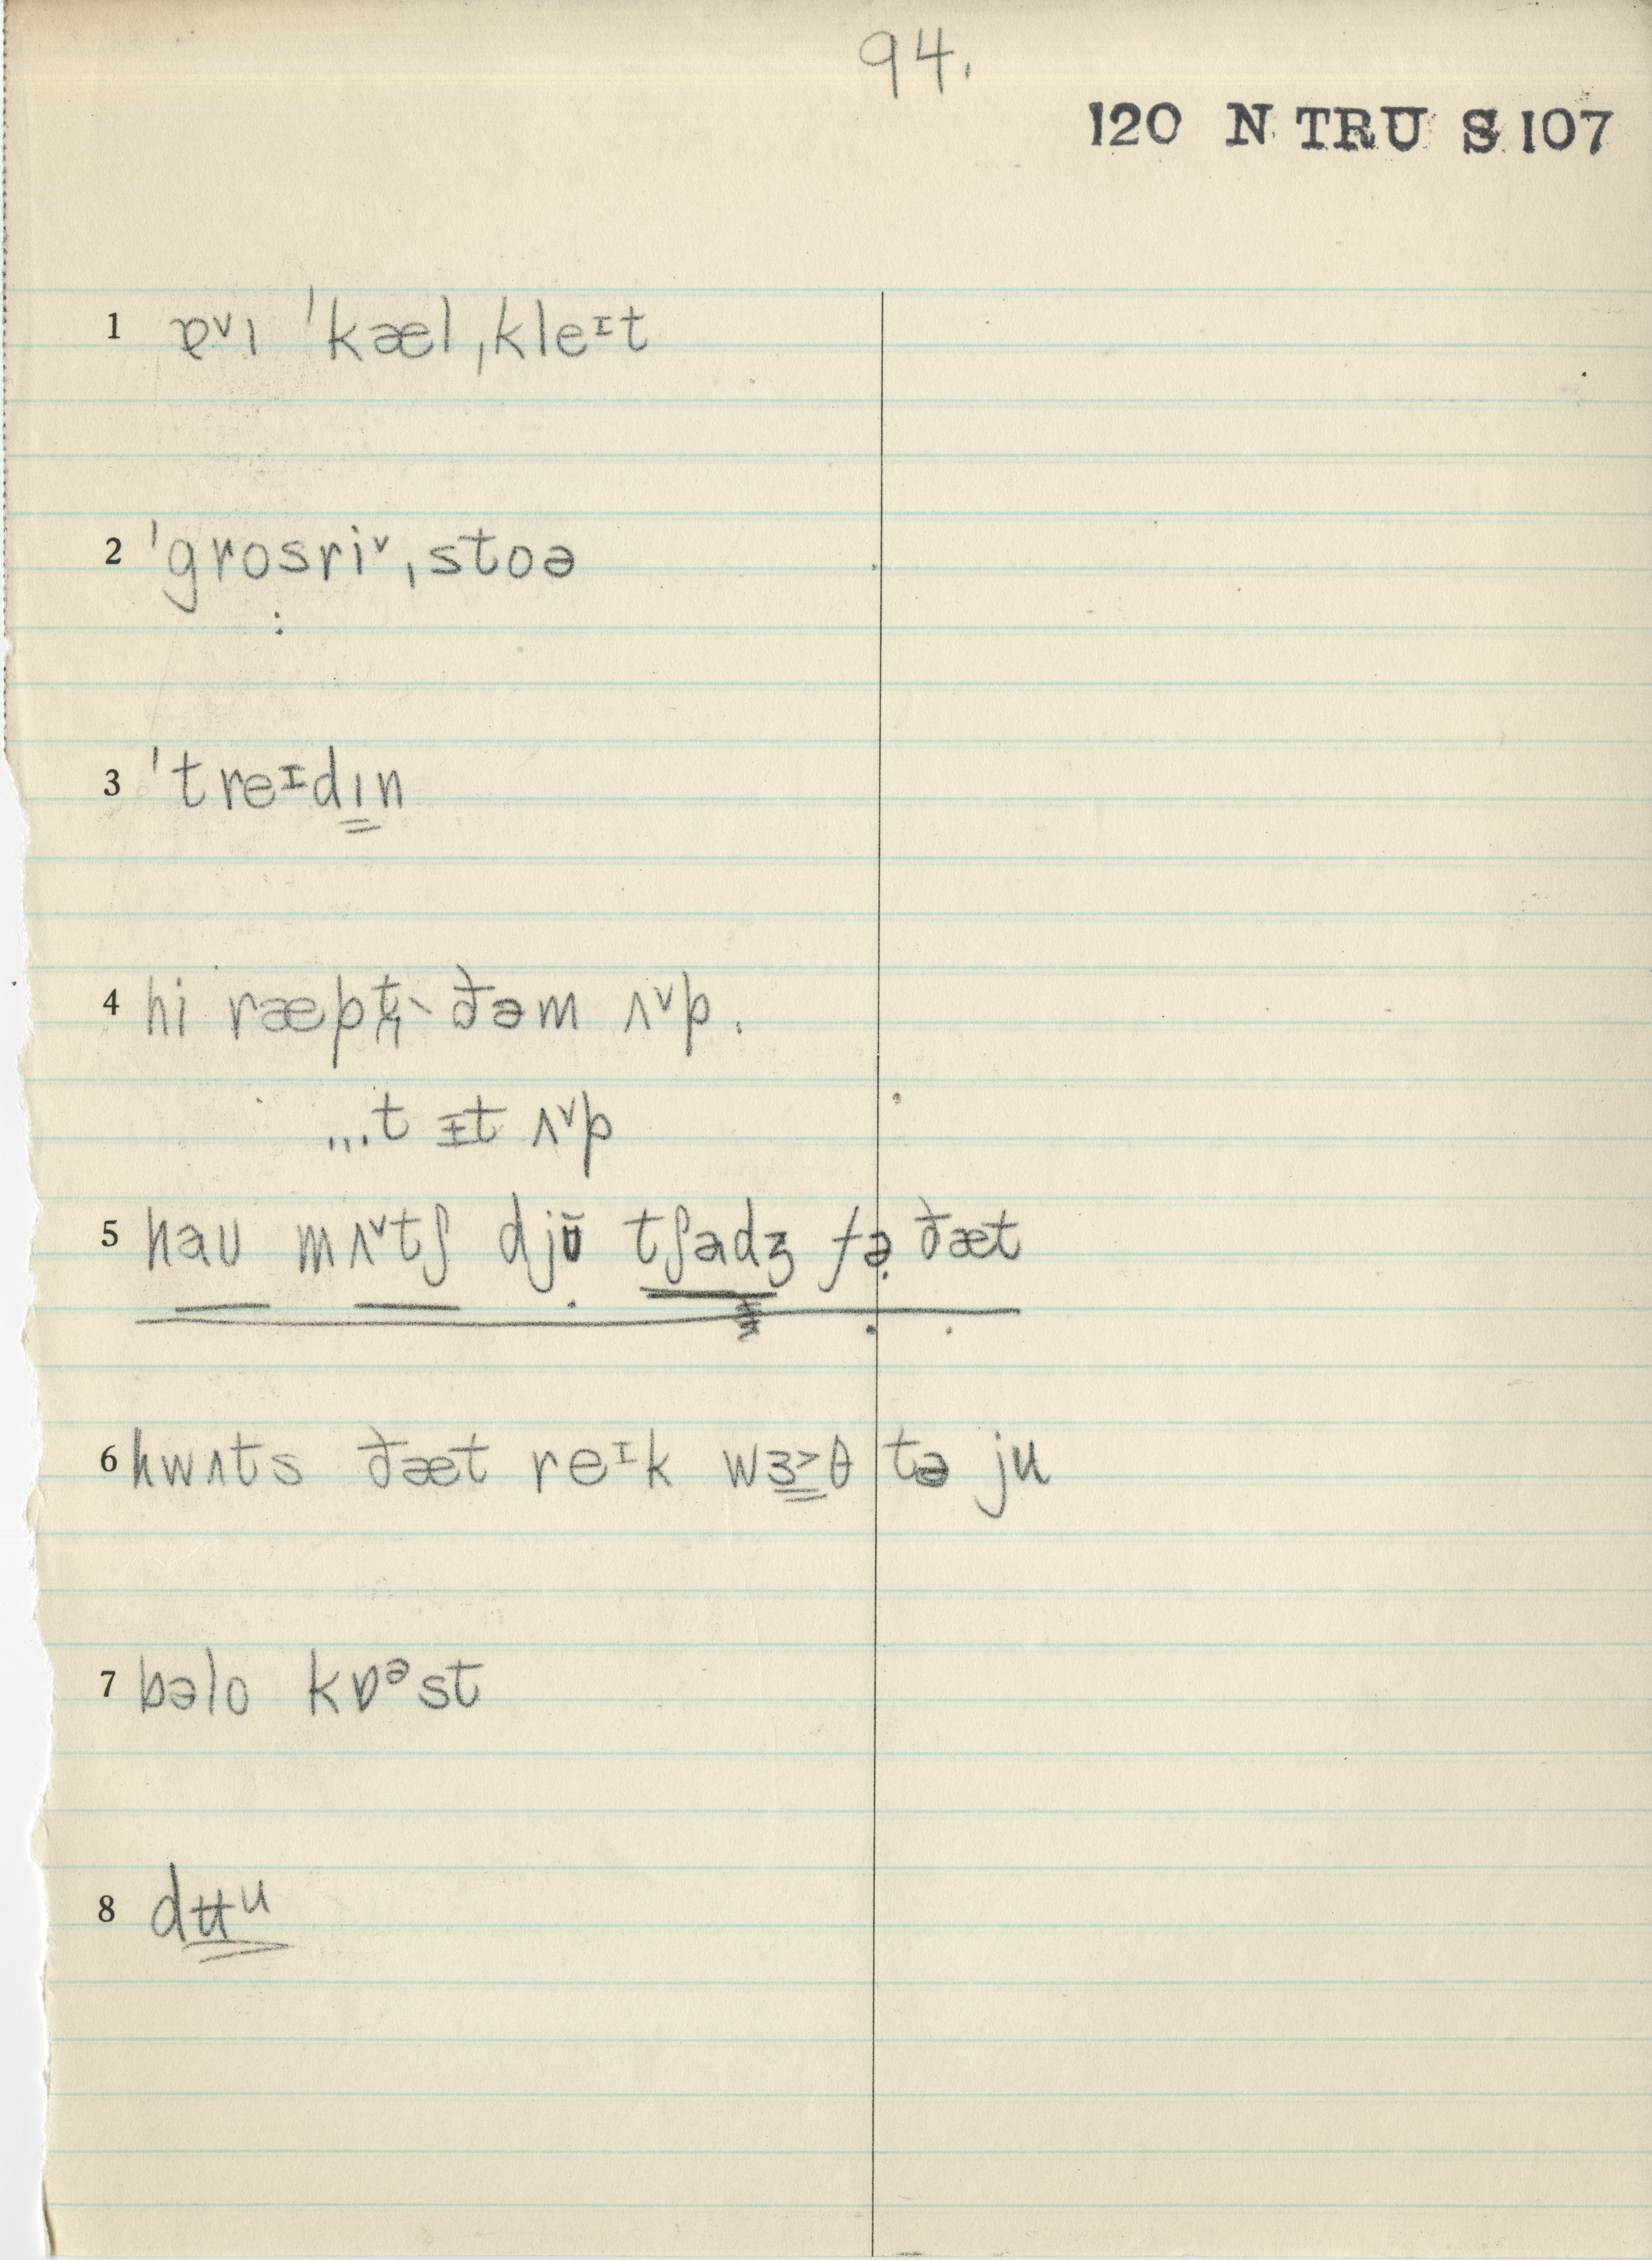 94.
120 N TRU S 107
1 ɐᵛɪ ˈkælˌkleᶦt
2 ˈgrosriᵛˌstoə
3 ˈtreᶦdɪn
4 hi ræpt ðəm ʌᵛp.
...t ɪt ʌᵛp
5 haʊ mʌᵛtʃ djʊ̆ tʃadʒ fə ðæt
6 hwʌts ðæt reᶦk wɜ˃θ tə ju
7 bəlo kɒᵊst
8 dʉᵘ